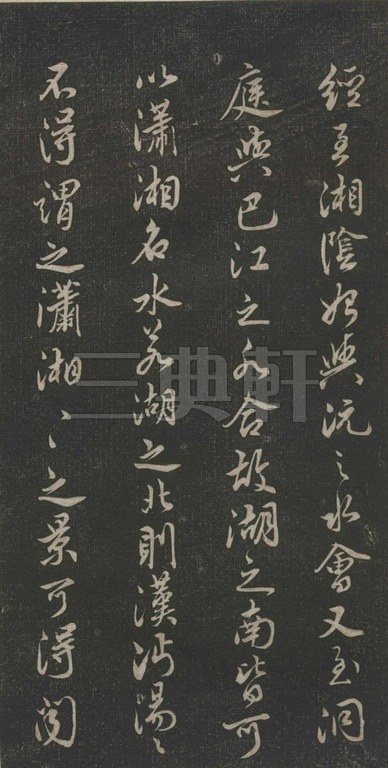 經至湘陰始與沅之水會又至洞
庭與巴江之水合故湖之南皆可
以瀟湘名水若湖之北則漢沔湯湯
不得謂之瀟湘湘之景可得聞
三典軒